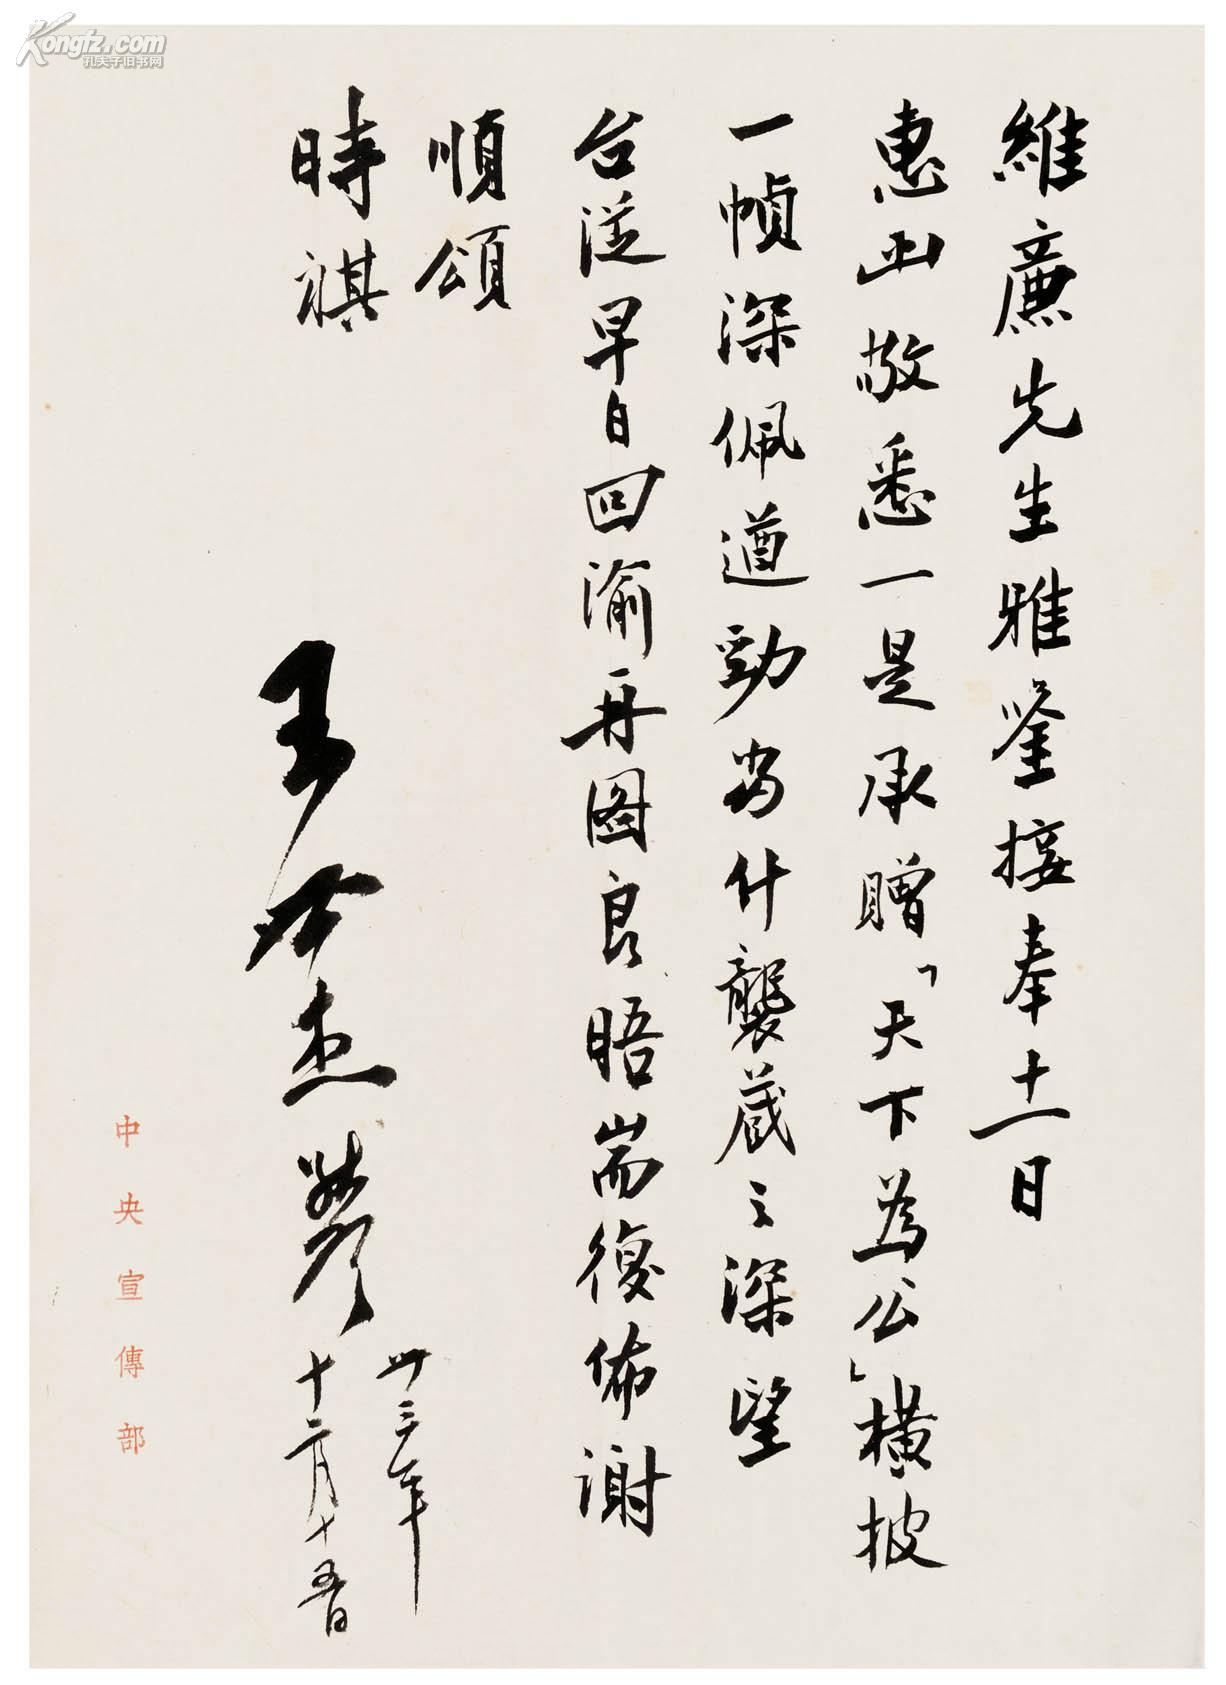 維廉先生雅鑒接奉十一日
惠函敬悉一是承贈「天下為公」橫披
一幀深佩遒勁當什襲藏之深望
台從早日回渝再圖良晤耑復佈謝
順頌
時祺
王世杰
卅三年
十二月十五日
中央宣傳部
Kongfz.com
孔夫子旧书网